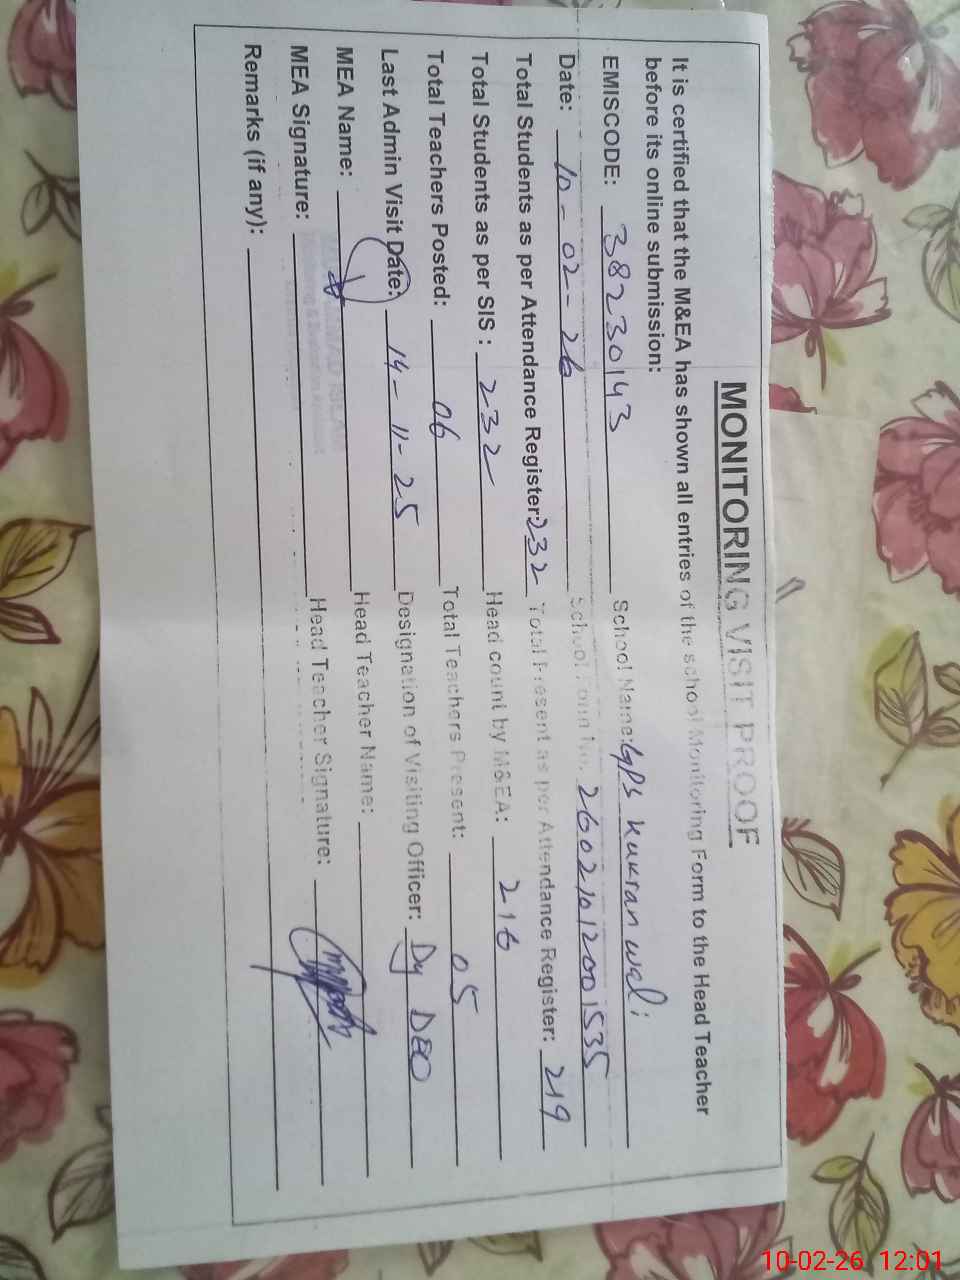 MONITORING VISIT PROOF
It is certified that the M&EA has shown all entries of the school Monitoring Form to the Head Teacher
before its online submission:
EMISCODE: 38230143 School Name: GPS Kukranwali
Date: 10-02-26 School Form No. 26021012001535
Total Students as per Attendance Register: 232 Total Present as per Attendance Register: 219
Total Students as per SIS : 232 Head count by M&EA: 216
Total Teachers Posted: 06 Total Teachers Present: 05
Last Admin Visit Date: 14-11-25 Designation of Visiting Officer: Dy DEO
MEA Name: Head Teacher Name:
MEA Signature: Head Teacher Signature:
Remarks (if any):
10-02-26 12:01